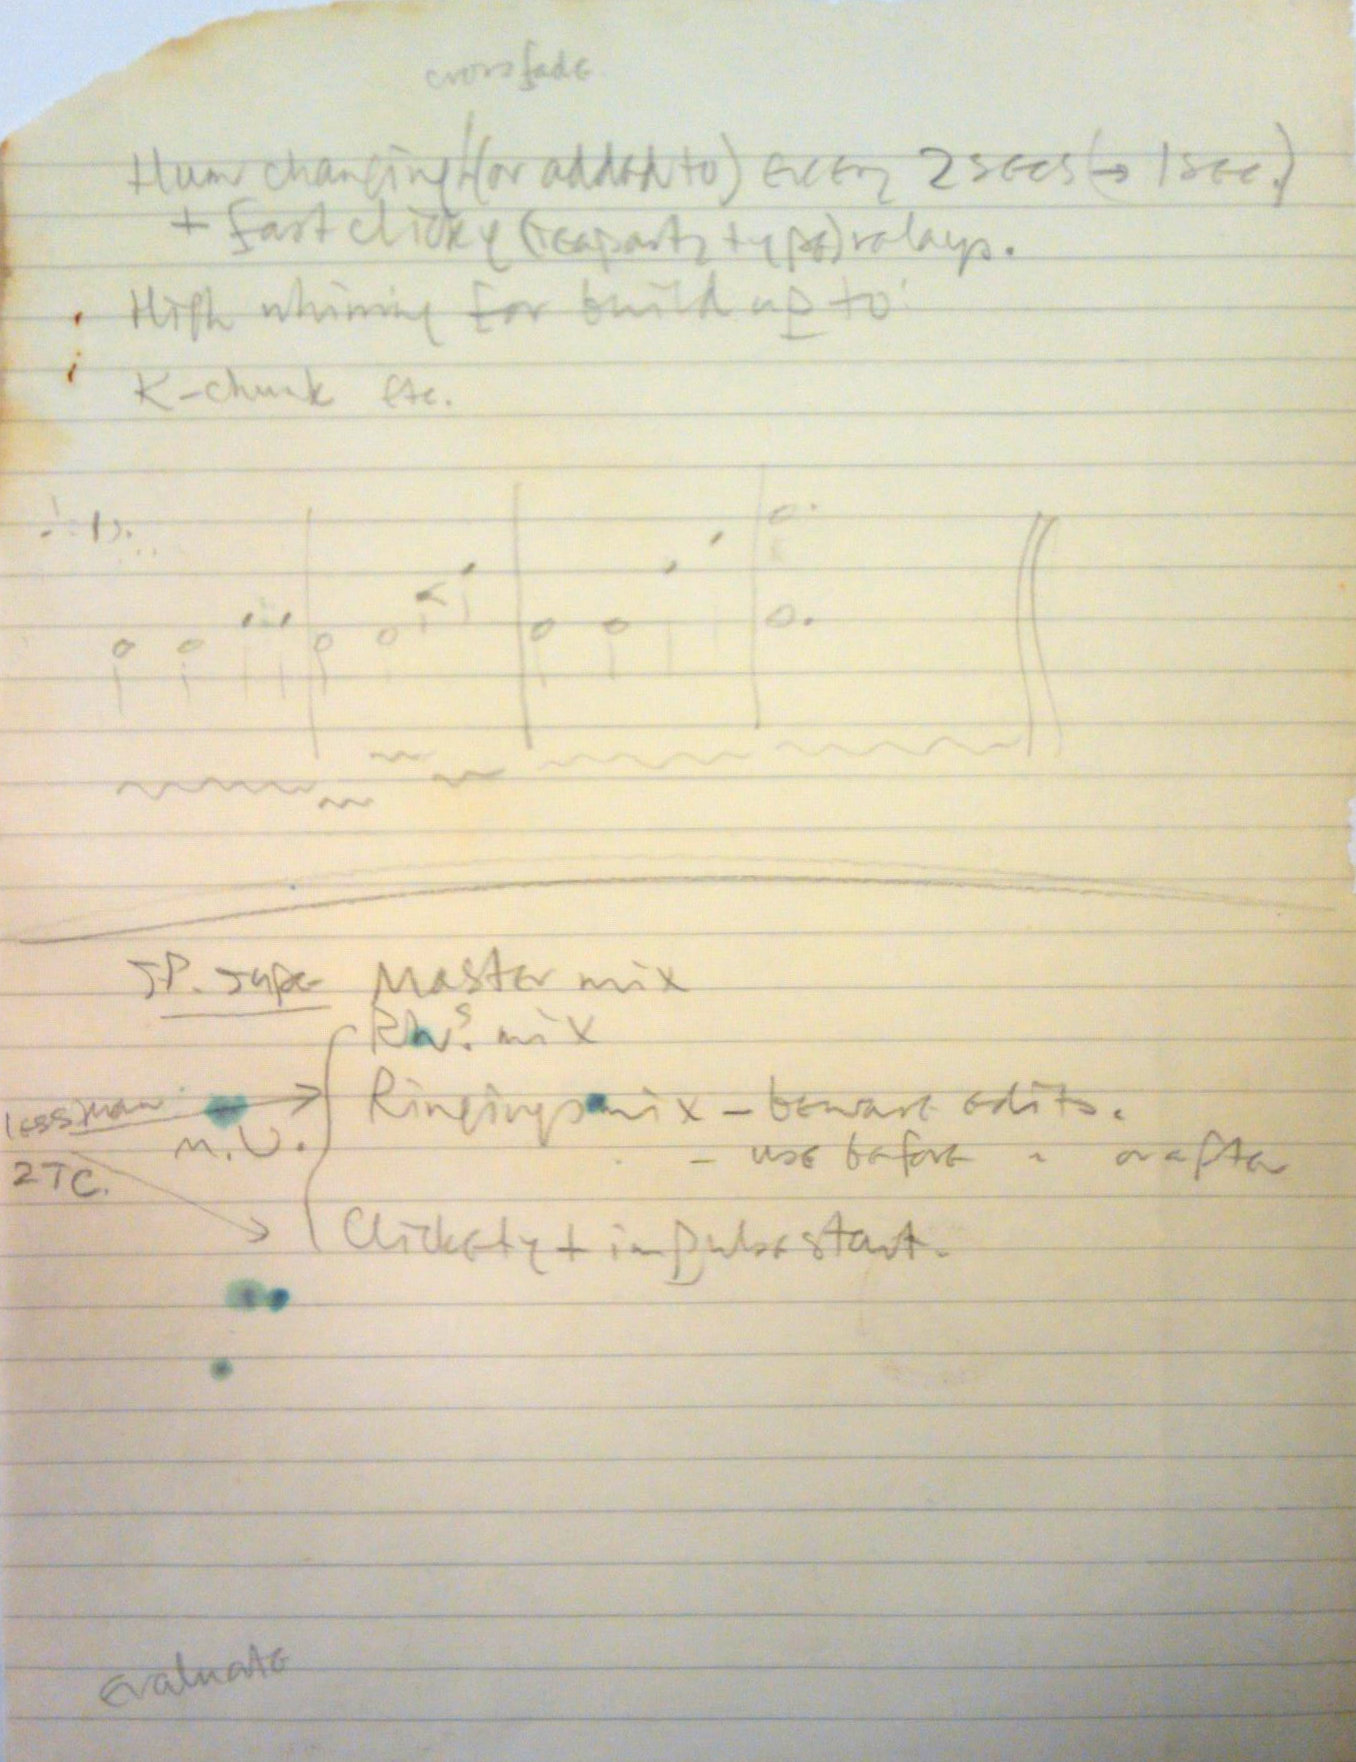 crossfade
Hum changing (or added to) every 2 secs (→ 1 sec.)
+ fast clicky (repeasty type) relays.
High whining for build up to:
K-chunk etc.
Master mix
mix
Ringings mix - beware edits.
less than
M.U.
- use before " or after
2 TC.
Clickety + impulse start.
evaluate